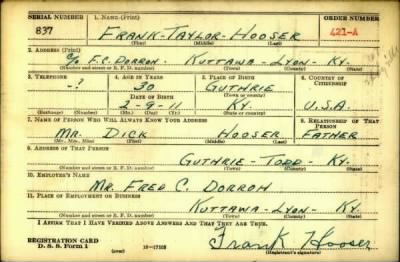 SERIAL NUMBER 1. NAME (Print) ORDER NUMBER
837 FRANK - TAYLOR - HOOSER 421-A
(First) (Middle) (Last)
2. ADDRESS (Print)
c/o F.C. DORROH. KUTTAWA - LYON - KY.
(Number and street or R. F. D. number) (Town) (County) (State)
3. TELEPHONE 4. AGE IN YEARS 5. PLACE OF BIRTH 6. COUNTRY OF CITIZENSHIP
-? 30 GUTHRIE
DATE OF BIRTH (Town or county)
2-9-11 KY. U.S.A.
7. NAME OF PERSON WHO WILL ALWAYS KNOW YOUR ADDRESS 8. RELATIONSHIP OF THAT PERSON
MR. DICK HOOSER FATHER
(Mr., Mrs., Miss) (First) (Middle) (Last)
9. ADDRESS OF THAT PERSON
GUTHRIE - TODD - KY.
(Number and street or R. F. D. number) (Town) (County) (State)
10. EMPLOYER'S NAME
MR. FRED C. DORROH
11. PLACE OF EMPLOYMENT OR BUSINESS
KUTTAWA - LYON - KY.
(Number and street or R. F. D. number) (Town) (County) (State)
I AFFIRM THAT I HAVE VERIFIED ABOVE ANSWERS AND THAT THEY ARE TRUE.
REGISTRATION CARD
D. S. S. Form 1 (over) 16-17105 Frank Hooser
(Registrant's signature)